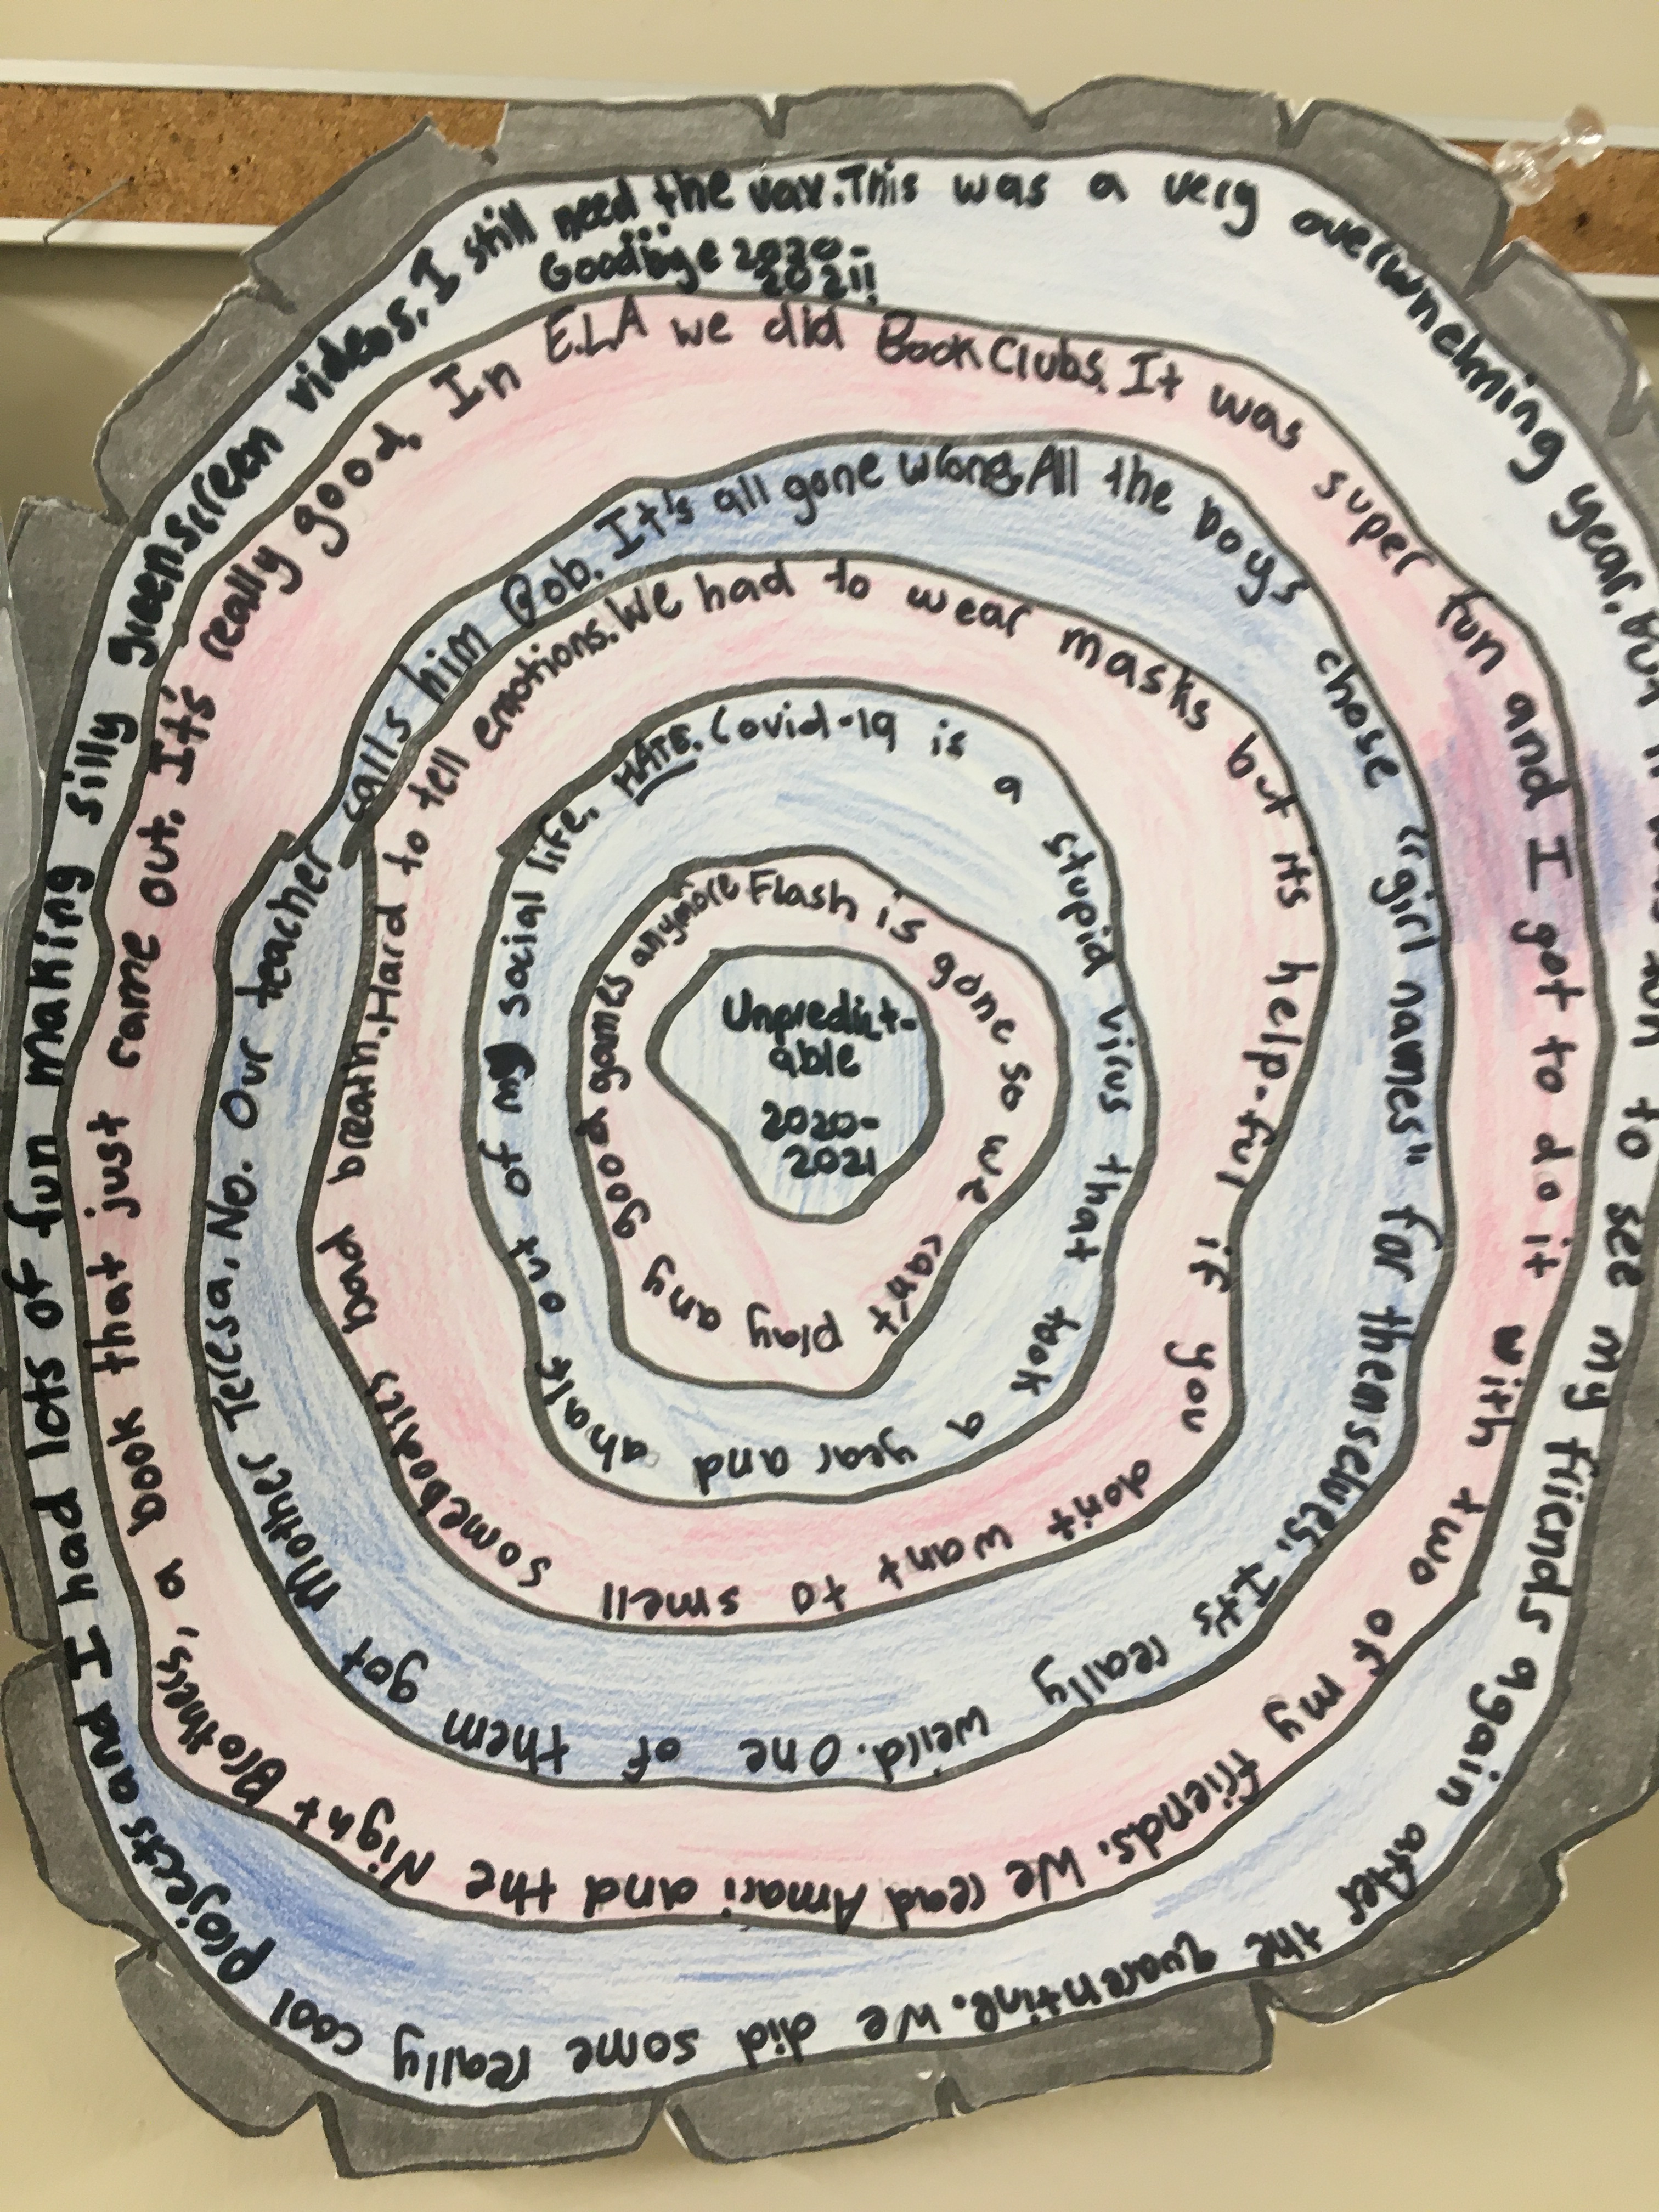 Unpredict-
able
2020-
2021
Flash is gone so we can't play any good games anymore
Covid-19 is a stupid virus that took a year and ahalf out of my social life. HATE.
We had to wear masks but its help-ful if you don't want to smell somebodies bad breath. Hard to tell emotions.
It's all gone wrong. All the boys chose "girl names" for themselves. It's really weird. One of them got Mother Teresa. No. Our teacher calls him Bob.
In E.L.A we did Book Clubs. It was super fun and I got to do it with two of my friends. We read Amari and the Night Brothers, a book that just came out. It's really good.
This was a very overwhelming year. but it was fun to see my friends again after the quarentine. We did some really cool projects and I had lots of fun making silly greenscreen videos. I still need the vax.
Goodbye 2020-
2021!!